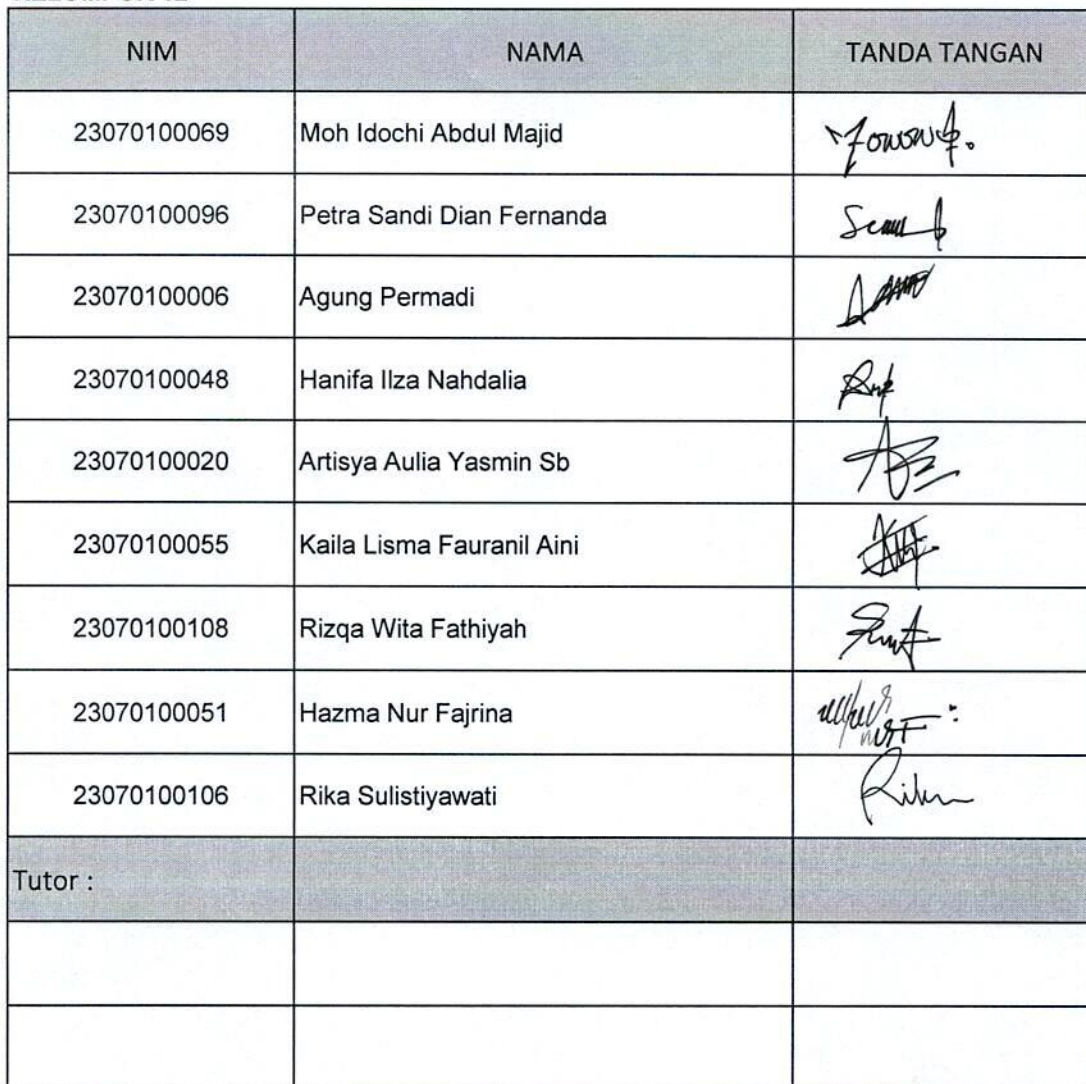 NIM NAMA TANDA TANGAN
23070100069 Moh Idochi Abdul Majid
23070100096 Petra Sandi Dian Fernanda
23070100006 Agung Permadi
23070100048 Hanifa Ilza Nahdalia
23070100020 Artisya Aulia Yasmin Sb
23070100055 Kaila Lisma Fauranil Aini
23070100108 Rizqa Wita Fathiyah
23070100051 Hazma Nur Fajrina
23070100106 Rika Sulistiyawati
Tutor :